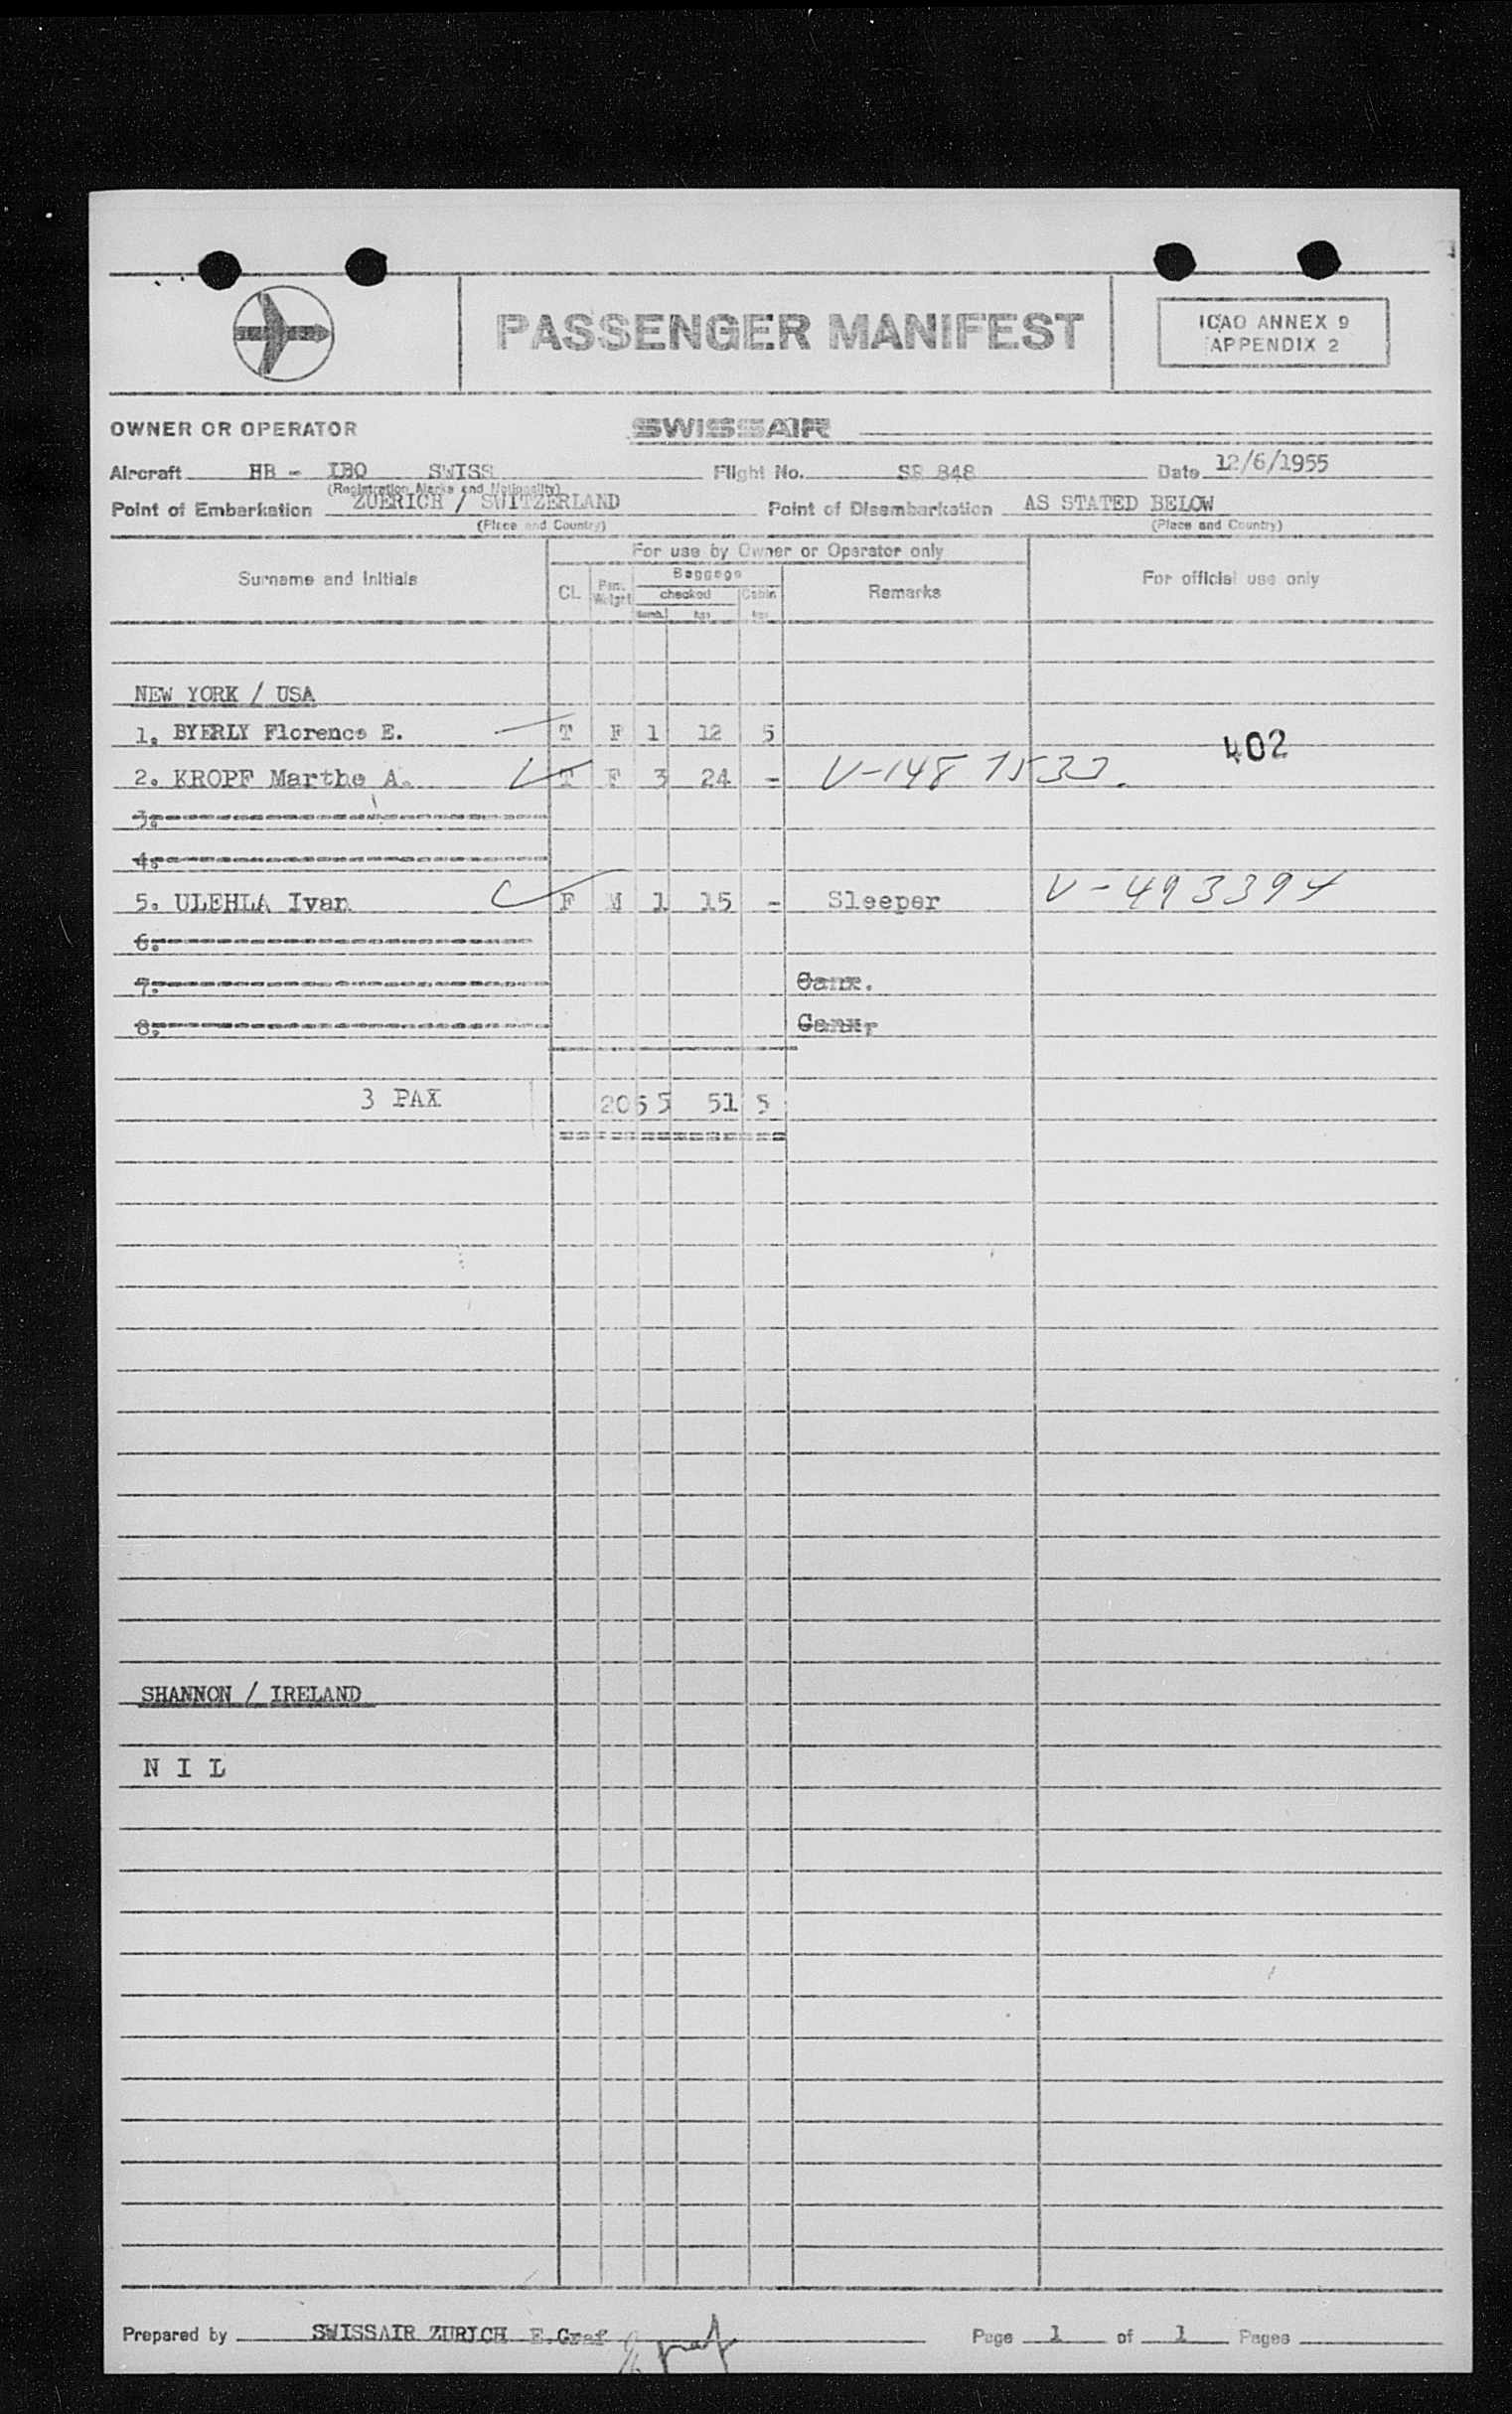 PASSENGER MANIFEST
ICAO ANNEX 9
APPENDIX 2
OWNER OR OPERATOR SWISSAIR
Aircraft HB - IBO SWISS Flight No. SR 848 Date 12/6/1955
(Registration Marks and Nationality)
Point of Embarkation ZUERICH / SWITZERLAND Point of Disembarkation AS STATED BELOW
(Place and Country) (Place and Country)
Surname and Initials For use by Owner or Operator only For official use only
CL Pas. Weight Baggage Remarks
checked Cabin
Numb. kgs kgs
NEW YORK / USA
1. BYERLY Florence E. T F 1 12 5
402
2. KROPF Marthe A. T F 3 24 - V-148 1533.
3.
4.
5. ULEHLA Ivan F M 1 15 - Sleeper V-493394
6.
7. Canx.
8. Canx.
3 PAX 205 5 51 5
SHANNON / IRELAND
N I L
Prepared by SWISSAIR ZURICH E.Graf Page 1 of 1 Pages